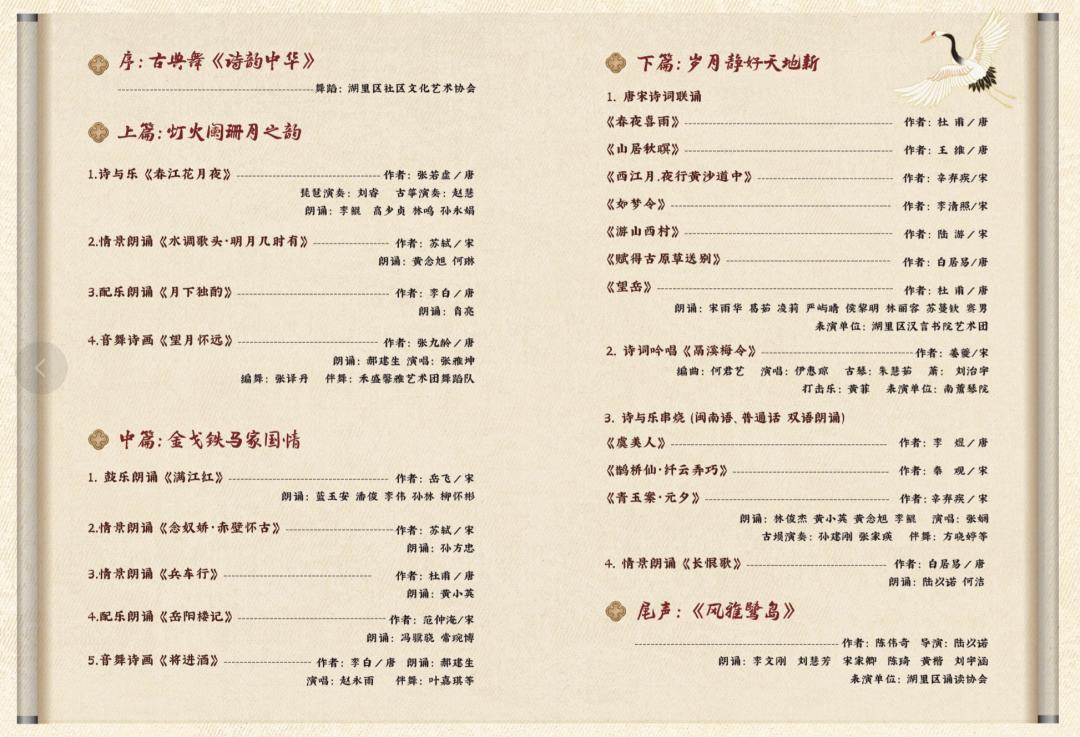 序：古典舞《诗韵中华》
舞蹈：湖里区社区文化艺术协会
上篇：灯火阑珊月之韵
1.诗与乐《春江花月夜》 作者：张若虚／唐
琵琶演奏：刘睿 古筝演奏：赵慧
朗诵：李鲲 高少贞 林鸣 孙永娟
2.情景朗诵《水调歌头·明月几时有》 作者：苏轼／宋
朗诵：黄念旭 何琳
3.配乐朗诵《月下独酌》 作者：李白／唐
朗诵：肖亮
4.音舞诗画《望月怀远》 作者：张九龄／唐
朗诵：郝建生 演唱：张雅坤
编舞：张译丹 伴舞：禾盛馨雅艺术团舞蹈队
中篇：金戈铁马家国情
1. 鼓乐朗诵《满江红》 作者：岳飞／宋
朗诵：蓝玉安 潘俊 李伟 孙林 柳怀彬
2.情景朗诵《念奴娇·赤壁怀古》 作者：苏轼／宋
朗诵：孙方忠
3.情景朗诵《兵车行》 作者：杜甫／唐
朗诵：黄小英
4.配乐朗诵《岳阳楼记》 作者：范仲淹/宋
朗诵：冯骥骁 常琬博
5.音舞诗画《将进酒》 作者：李白／唐 朗诵：郝建生
演唱：赵永雨 伴舞：叶嘉琪等
下篇：岁月静好天地新
1. 唐宋诗词联诵
《春夜喜雨》 作者：杜 甫／唐
《山居秋暝》 作者：王 维／唐
《西江月.夜行黄沙道中》 作者：辛弃疾/宋
《如梦令》 作者：李清照/宋
《游山西村》 作者：陆 游／宋
《赋得古原草送别》 作者：白居易/唐
《望岳》 作者：杜 甫／唐
朗诵：宋雨华 易茹 凌莉 严屿晴 侯黎明 林丽容 苏蔓钦 赛男
表演单位：湖里区汉言书院艺术团
2. 诗词吟唱《鬲溪梅令》 作者：姜夔/宋
编曲：何君艺 演唱：伊惠琼 古琴：朱慧茹 萧： 刘治宇
打击乐：黄菲 表演单位：南薰琴院
3. 诗与乐串烧 (闽南语、普通话 双语朗诵)
《虞美人》 作者：李 煜／唐
《鹊桥仙·纤云弄巧》 作者：秦 观／宋
《青玉案·元夕》 作者：辛弃疾／宋
朗诵：林俊杰 黄小英 黄念旭 李鲲 演唱：张娴
古埙演奏：孙建刚 张家瑛 伴舞：方晓婷等
4. 情景朗诵《长恨歌》 作者：白居易／唐
朗诵：陆以诺 何洁
尾声：《风雅鹭岛》
作者：陈伟奇 导演：陆以诺
朗诵：李文刚 刘慧芳 宋家卿 陈琦 黄楷 刘宇涵
表演单位：湖里区诵读协会